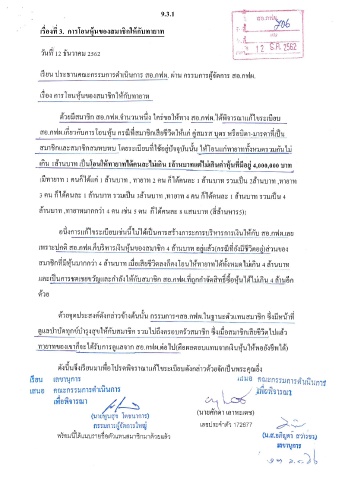 9.3.1
เรื่องที่ 3. การโอนหุ้นของสมาชิกให้กับทายาท
สอ.กฟผ.
706
12 ธ.ค. 2562
วันที่ 12 ธันวาคม 2562
เรียน ประธานคณะกรรมการดำเนินการ สอ.กฟผ. ผ่าน กรรมการผู้จัดการ สอ.กฟผ.
เรื่อง การโอนหุ้นของสมาชิกให้กับทายาท
ด้วยมีสมาชิก สอ.กฟผ.จำนวนหนึ่ง ใคร่ขอให้ทาง สอ.กฟผ.ได้พิจารณาแก้ไขระเบียบ
สอ.กฟผ.เกี่ยวกับการโอนหุ้น กรณีที่สมาชิกเสียชีวิตให้แก่ คู่สมรส บุตร หรือบิดา-มารดาที่เป็น
สมาชิกและสมาชิกสมทบ โดยระเบียบที่ใช้อยู่ปัจจุบันนั้น ให้โอนแก่ทายาททั้งหมดรวมกันไม่
เกิน 1ล้านบาท เป็นโอนให้ทายาทได้คนละไม่เกิน 1ล้านบาทแต่ไม่เกินค่าหุ้นที่มีอยู่ 4,000,000 บาท
เมื่อทายาท 1 คนก็ได้แค่ 1 ล้านบาท , ทายาท 2 คน ก็ได้คนละ 1 ล้านบาท รวมเป็น 2ล้านบาท ,ทายาท
3 คน ก็ได้คนละ 1 ล้านบาท รวมเป็น 3ล้านบาท ,ทายาท 4 คน ก็ได้คนละ 1 ล้านบาท รวมเป็น 4
ล้านบาท ,ทายาทมากกว่า 4 คน เช่น 5 คน ก็ได้คนละ 8 แสนบาท (สี่ล้านหาร5)
อนึ่งการแก้ไขระเบียบเช่นนี้ไม่ได้เป็นการสร้างภาระการบริหารการเงินให้กับ สอ.กฟผ.เลย
เพราะปกติ สอ.กฟผ.ก็บริหารเงินหุ้นของสมาชิก 4 ล้านบาท อยู่แล้ว(กรณีที่ยังมีชีวิตอยู่)ส่วนของ
สมาชิกที่มีหุ้นมากกว่า 4 ล้านบาท เมื่อเสียชีวิตลงก็คงโอนให้ทายาทได้ทั้งหมดไม่เกิน 4 ล้านบาท
และเป็นการชดเชยขวัญและกำลังให้กับสมาชิก สอ.กฟผ.ที่ถูกจำกัดสิทธิ์ซื้อหุ้นได้ไม่เกิน 4 ล้านอีก
ด้วย
ด้วยจุดประสงค์ดังกล่าวข้างต้นนั้น กรรมการฯสอ.กฟผ.ในฐานะตัวแทนสมาชิก ซึ่งมีหน้าที่
ดูแลบำบัดทุกข์บำรุงสุขให้กับสมาชิก รวมไปถึงครอบครัวสมาชิก ซึ่งเมื่อสมาชิกเสียชีวิตไปแล้ว
ทายาทของเขาก็จะได้รับการดูแลจาก สอ.กฟผ.ต่อไป(เพียงผลตอบแทนจากเงินหุ้นให้พอยังชีพได้)
ดังนั้นจึงเรียนมาเพื่อโปรดพิจารณาแก้ไขระเบียบดังกล่าวด้วยจักเป็นพระคุณยิ่ง
เรียน เลขานุการ
เสนอ คณะกรรมการดำเนินการ
เพื่อพิจารณา
กรรมการผู้จัดการใหญ่
พร้อมนี้ได้แนบรายชื่อตัวแทนสมาชิกมาด้วยแล้ว
(นายศักดา เลาหะเดช)
เลขประจำตัว 172677
เสนอ คณะกรรมการดำเนินการ
เพื่อพิจารณา
เลขานุการ